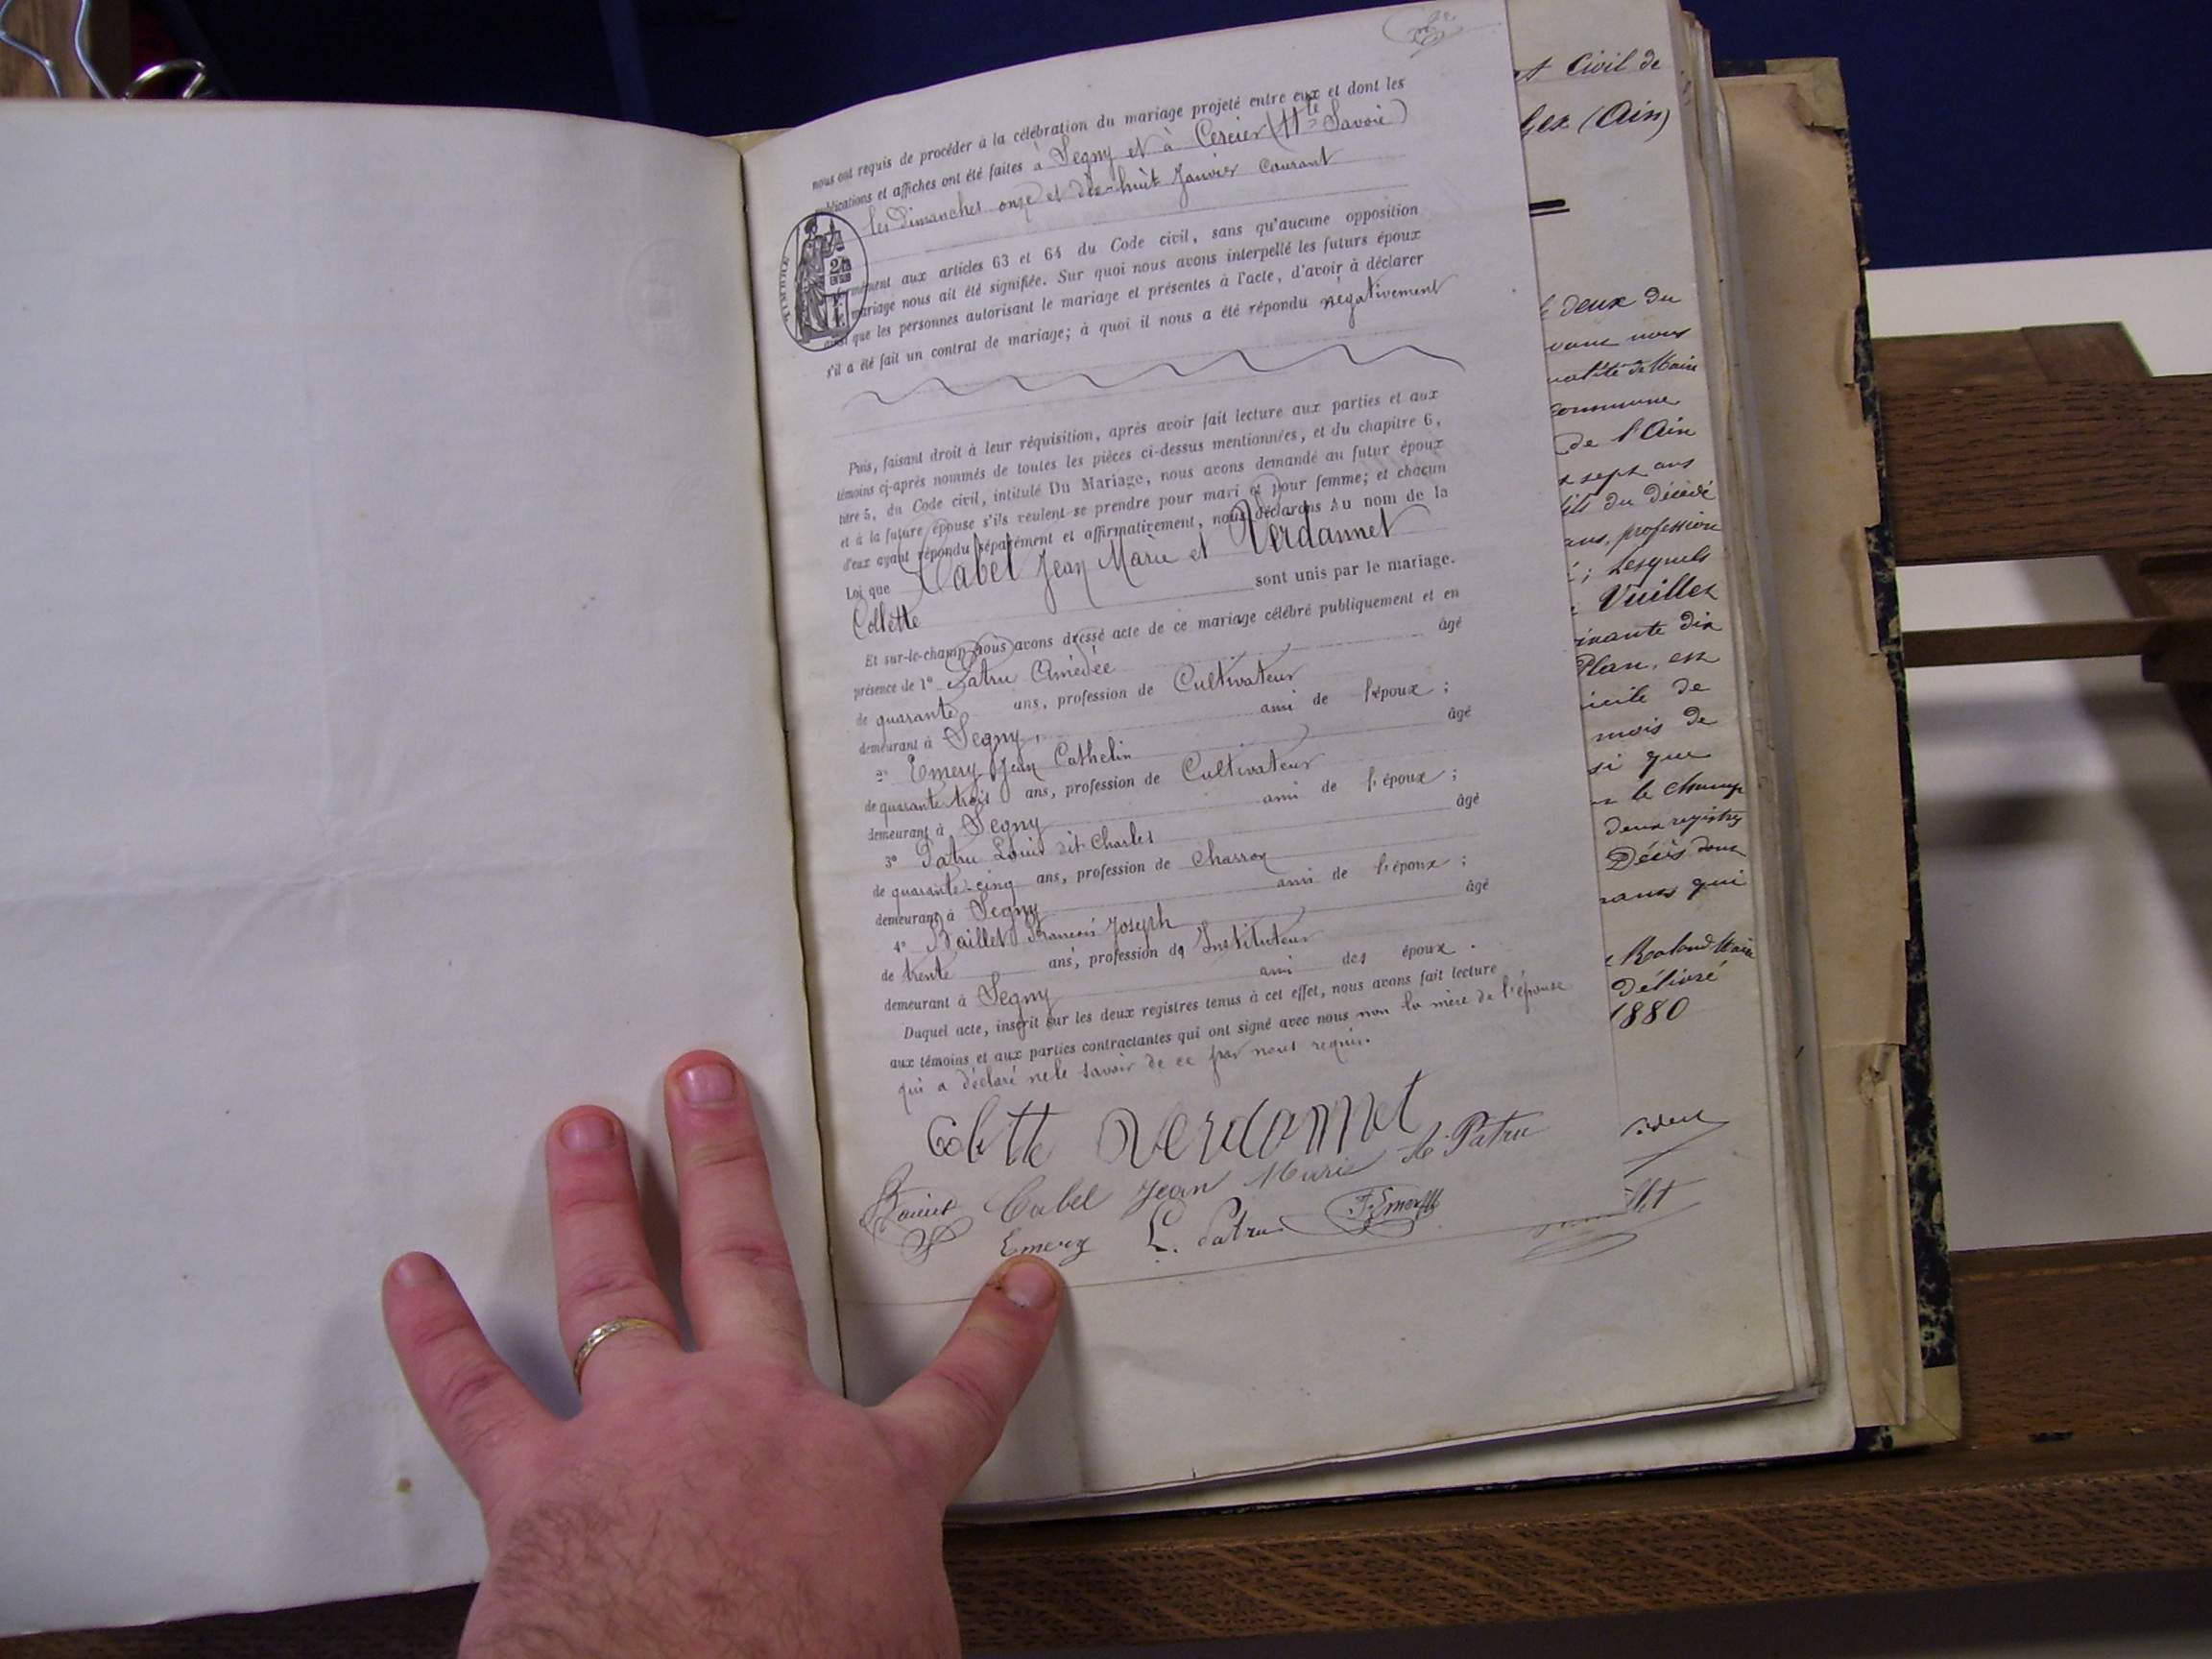 nous ont requis de procéder à la célébration du mariage projeté entre eux et dont les
publications et affiches ont été faites à Segny et à Cercier (Hte Savoie)
les Dimanches onze et dix-huit Janvier Courant
TIMBRE
aux articles 63 et 64 du Code civil, sans qu'aucune opposition
mariage nous ait été signifiée. Sur quoi nous avons interpellé les futurs époux
ainsi que les personnes autorisant le mariage et présentes à l'acte, d'avoir à déclarer
s'il a été fait un contrat de mariage; à quoi il nous a été répondu négativement
Puis, faisant droit à leur réquisition, après avoir fait lecture aux parties et aux
témoins ci-après nommés de toutes les pièces ci-dessus mentionnées, et du chapitre 6,
titre 5, du Code civil, intitulé Du Mariage, nous avons demandé au futur époux
et à la future épouse s'ils veulent se prendre pour mari et pour femme; et chacun
d'eux ayant répondu séparément et affirmativement, nous déclarons Au nom de la
Loi que Cabel Jean Marie et Verdannet
Collette sont unis par le mariage.
Et sur-le-champ nous avons dressé acte de ce mariage célébré publiquement et en
présence de 1º Patru Amédée âgé
de quarante ans, profession de Cultivateur
demeurant à Segny, ami de l'époux ;
2º Emery Jean Cathelin âgé
de quarante trois ans, profession de Cultivateur
demeurant à Segny ami de l'époux ;
3º Patru Louis dit Charles âgé
de quarante-cinq ans, profession de Charron
demeurant à Segny ami de l'époux ;
4º François Joseph âgé
de trente ans, profession de Instituteur
demeurant à Segny ami des époux.
Duquel acte, inscrit sur les deux registres tenus à cet effet, nous avons fait lecture
aux témoins et aux parties contractantes qui ont signé avec nous non la mère de l'épouse
qui a déclaré ne le savoir de ce par nous requis.
Colette Verdannet
Cabel Jean Marie A. Patru
Emery L. Patru
Civil de
Gex (Ain)
deux du
nous
Maire
commune
de l'Ain
sept ans
fils du décédé
ans, profession
; lesquels
Vuillet
dix
Plan, est
de
mois de
si que
le champ
deux registres
Décès dont
qui
Roland Maire
Délivré
1880